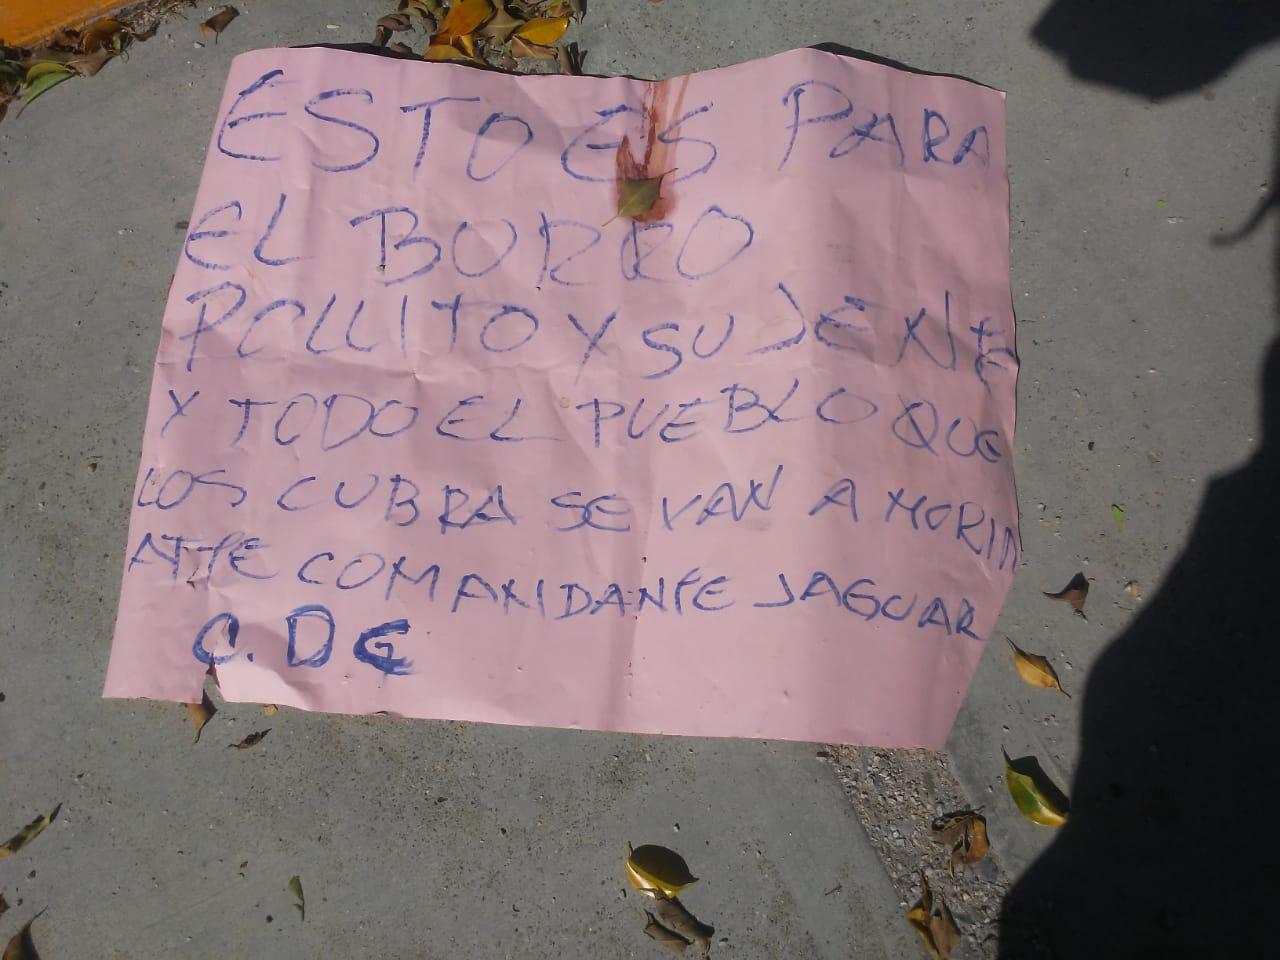 ESTO ES PARA
EL BURRO
POLLITO Y SU JENTE
Y TODO EL PUEBLO QUE
LOS CUBRA SE VAN A MORIR
ATTE COMANDANTE JAGUAR
C.DG